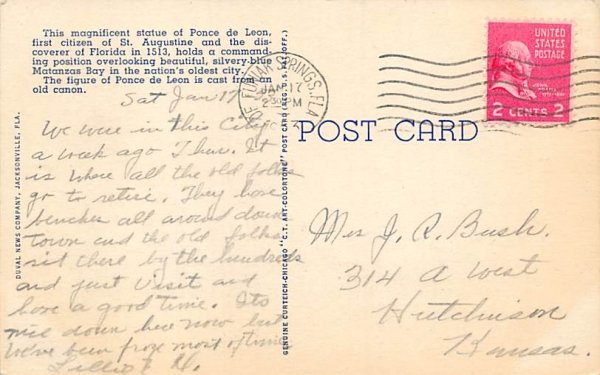 This magnificent statue of Ponce de Leon,
first citizen of St. Augustine and the dis-
coverer of Florida in 1513, holds a command-
ing position overlooking beautiful, silvery-blue
Matanzas Bay in the nation's oldest city.
The figure of Ponce de Leon is cast from an
old canon.
Sat Jan 17
We were in this City
a week ago Thur. It
is where all the old folks
go to retire. They have
benches all around down
town and the old folks
sit there by the hundreds
and just visit and
have a good time. Its
nice down here now but
We've been froze most of time
DUVAL NEWS COMPANY, JACKSONVILLE, FLA.
GENUINE CURTEICH-CHICAGO "C.T. ART-COLORTONE" POST CARD (REG. U.S. PAT. OFF.)
DE FUNIAK SPRINGS, FLA.
JAN 17
2 PM
UNITED
STATES
POSTAGE
JOHN
ADAMS
2 CENTS 2
POST CARD
Mrs J. R. Bush.
314 A West
Hutchinson
Kansas.